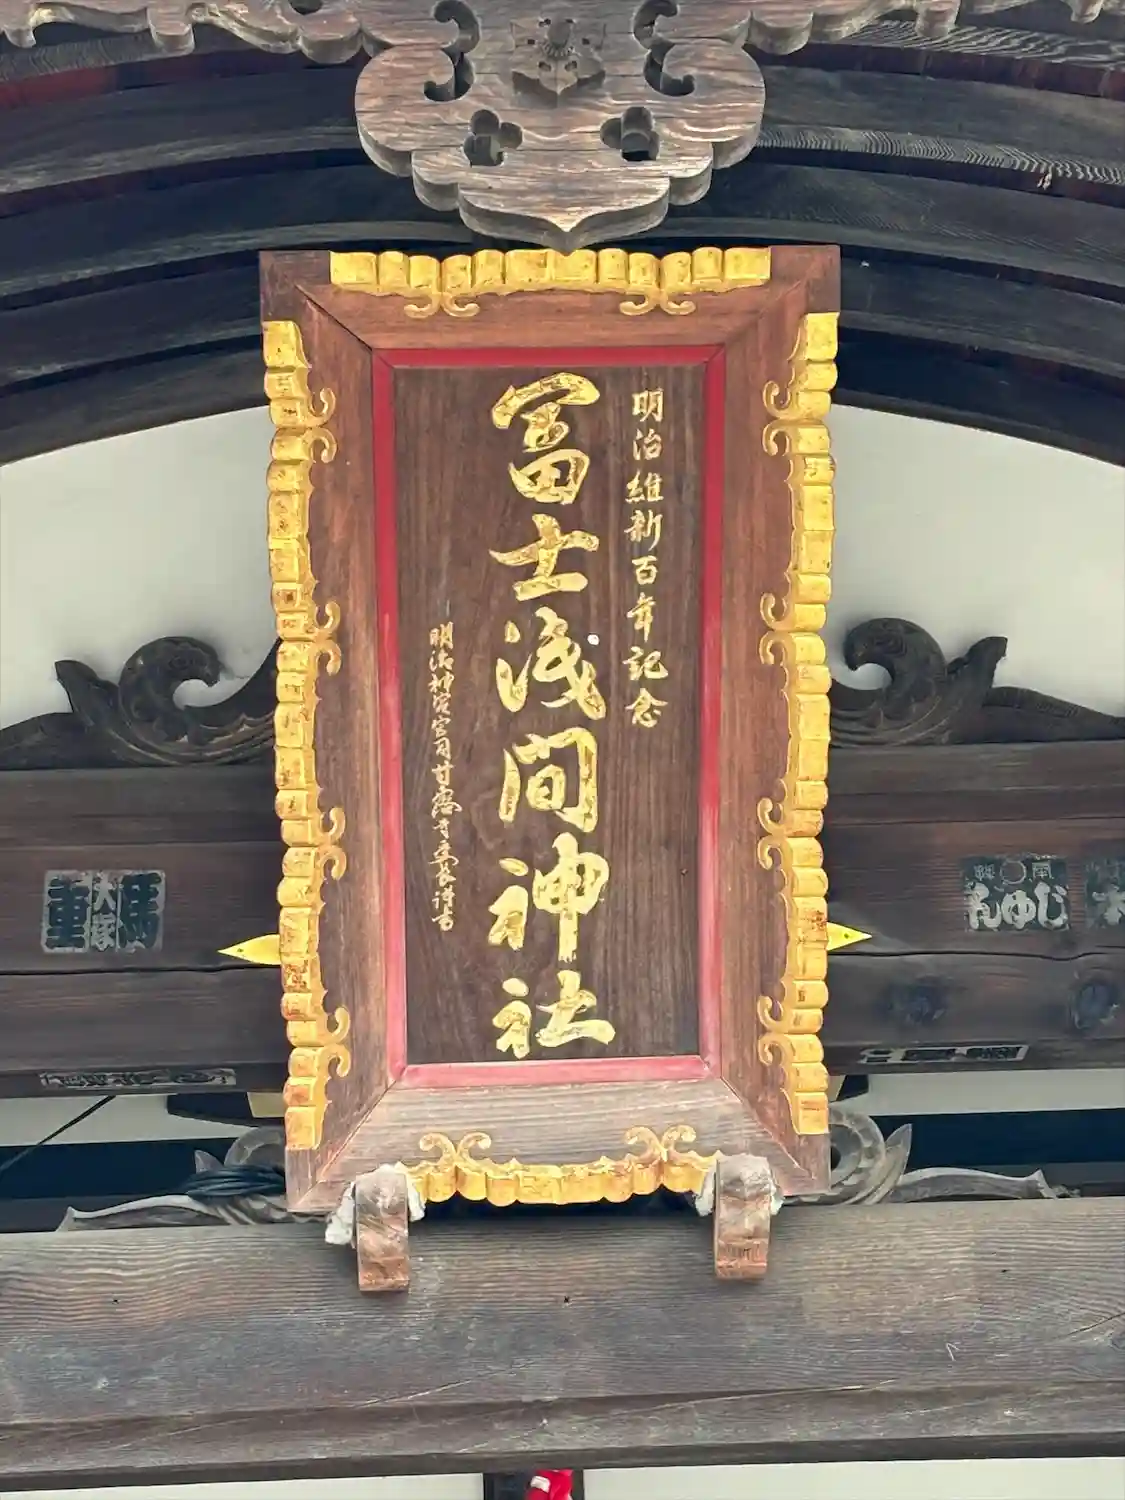 明治維新百年記念
冨士浅間神社
明治神宮宮司甘露寺受長謹書
馬
大塚
重
じゆん